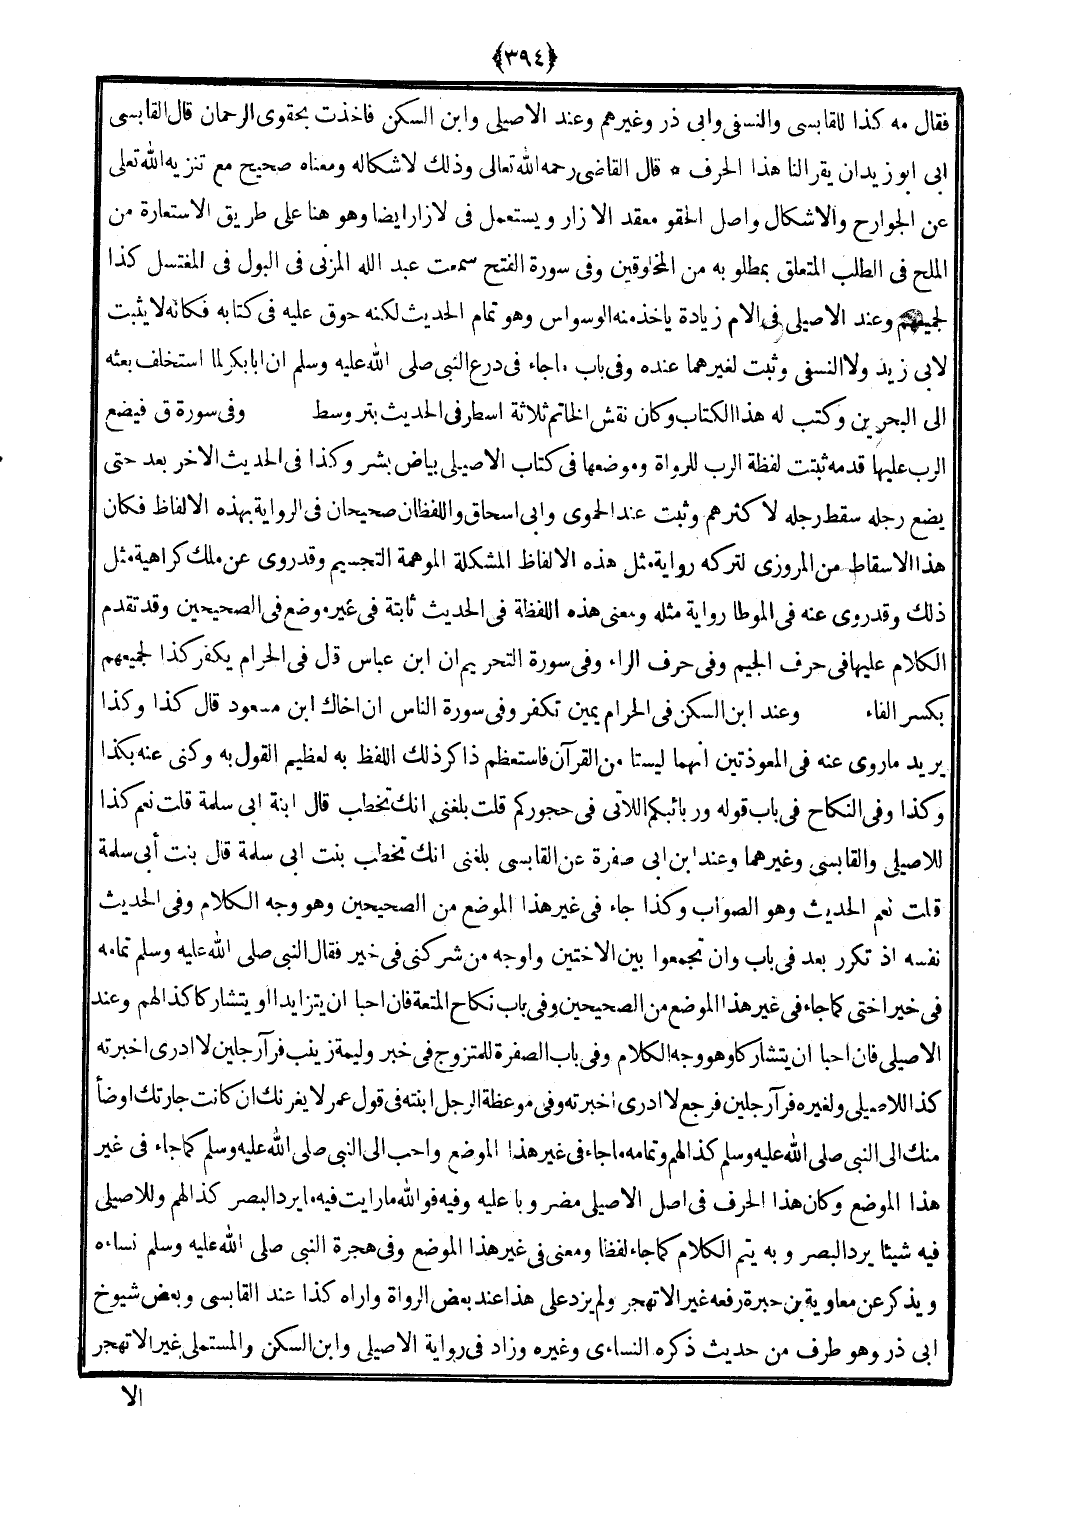 ﴿٣٩٤﴾
فقال مه كذا للقابسى والنسفى وابى ذر وغيرهم وعند الاصيلى وابن السكن فاخذت بحقوى الرحمان قال القابسى
ابى ابو زيد ان يقر النا هذا الحرف * قال القاضى رحمه الله تعالى وذلك لاشكاله ومعناه صحيح مع تنزيه الله تعلى
عن الجوارح والاشكال واصل الحقو معقد الازار ويستعمل فى لازار ايضا وهو هنا على طريق الاستعارة من
الملح فى الطلب المتعلق بمطلوبه من المخلوقين وفى سورة الفتح سمعت عبد الله المزنى فى البول فى المغتسل كذا
لجميعهم وعند الاصيلى فى الام زيادة ياخذ منه الوسواس وهو تمام الحديث لكنه حوق عليه فى كتابه فكانه لا يثبت
لابى زيد ولا النسفى وثبت لغيرهما عنده وفى باب ماجاء فى درع النبى صلى الله عليه وسلم ان ابا بكر لما استخلف بعثه
الى البحرين وكتب له هذا الكتاب وكان نقش الخاتم ثلاثة اسطر فى الحديث بتر وسط وفى سورة ق فيضع
الرب عليها قدمه ثبتت لفظة الرب للرواة وموضعها فى كتاب الاصيلى بياض بشر وكذا فى الحديث الاخر بعد حتى
يضع رجله سقط رجله لاكثرهم وثبت عند الحموى وابى اسحاق واللفظان صحيحان فى الرواية بهذه الالفاظ فكان
هذا الاسقاط من المروزى لتركه رواية مثل هذه الالفاظ المشكلة الموهمة التجسيم وقد روى عن ملك كراهية مثل
ذلك وقد روى عنه فى الموطا رواية مثله ومعنى هذه اللفظة فى الحديث ثابتة فى غير موضع فى الصحيحين وقد تقدم
الكلام عليها فى حرف الجيم وفى حرف الراء وفى سورة التحريم ان ابن عباس قل فى الحرام يكفر كذا لجميعهم
بكسر الفاء وعند ابن السكن فى الحرام يمين تكفر وفى سورة الناس ان اخاك ابن مسعود قال كذا وكذا
يريد ماروى عنه فى المعوذتين انهما ليستا من القرآن فاستعظم ذاكر ذلك اللفظ به لعظيم القول به وكنى عنه بكذا
وكذا وفى النكاح فى باب قوله وربائبكم اللاتى فى حجوركم قلت بلغنى انك تخطب قال ابنة ابى سلمة قلت نعم كذا
للاصيلى والقابسى وغيرهما وعند ابن ابى صفرة عن القابسى بلغنى انك تخطب بنت ابى سلمة قال بنت أبى سلمة
قلت نعم الحديث وهو الصواب وكذا جاء فى غير هذا الموضع من الصحيحين وهو وجه الكلام وفى الحديث
نفسه اذ تكرر بعد فى باب وان تجمعوا بين الاختين واوجه من شركنى فى خير فقال النبى صلى الله عليه وسلم تمامه
فى خير اختى كما جاء فى غير هذا الموضع من الصحيحين وفى باب نكاح المتعة فان احبا ان يتزايدا او يتشاركا كذا لهم وعند
الاصيلى فان احبا ان يتشاركا وهو وجه الكلام وفى باب الصفرة للمتزوج فى خبر وليمة زينب فرآ رجلين لا ادرى اخبرته
كذا للاصيلى ولغيره فرآ رجلين فرجع لا ادرى اخبرته وفى موعظة الرجل ابنته فى قول عمر لا يغرنك ان كانت جارتك اوضأ
منك الى النبى صلى الله عليه وسلم كذا لهم وتمامه ماجاء فى غير هذا الموضع واحب الى النبى صلى الله عليه وسلم كما جاء فى غير
هذا الموضع وكان هذا الحرف فى اصل الاصيلى مضروبا عليه وفيه فوالله مارايت فيه مايرد البصر كذا لهم وللاصيلى
فيه شيئا يرد البصر وبه يتم الكلام كما جاء لفظا ومعنى فى غير هذا الموضع وفى هجرة النبى صلى الله عليه وسلم نساءه
ويذكر عن معاوية بن حيرة رفعه غير الا تهجر ولم يزد على هذا عند بعض الرواة واراه كذا عند القابسى وبعض شيوخ
ابى ذر وهو طرف من حديث ذكره النساءى وغيره وزاد فى رواية الاصيلى وابن السكن والمستملى غير الا تهجر
الا